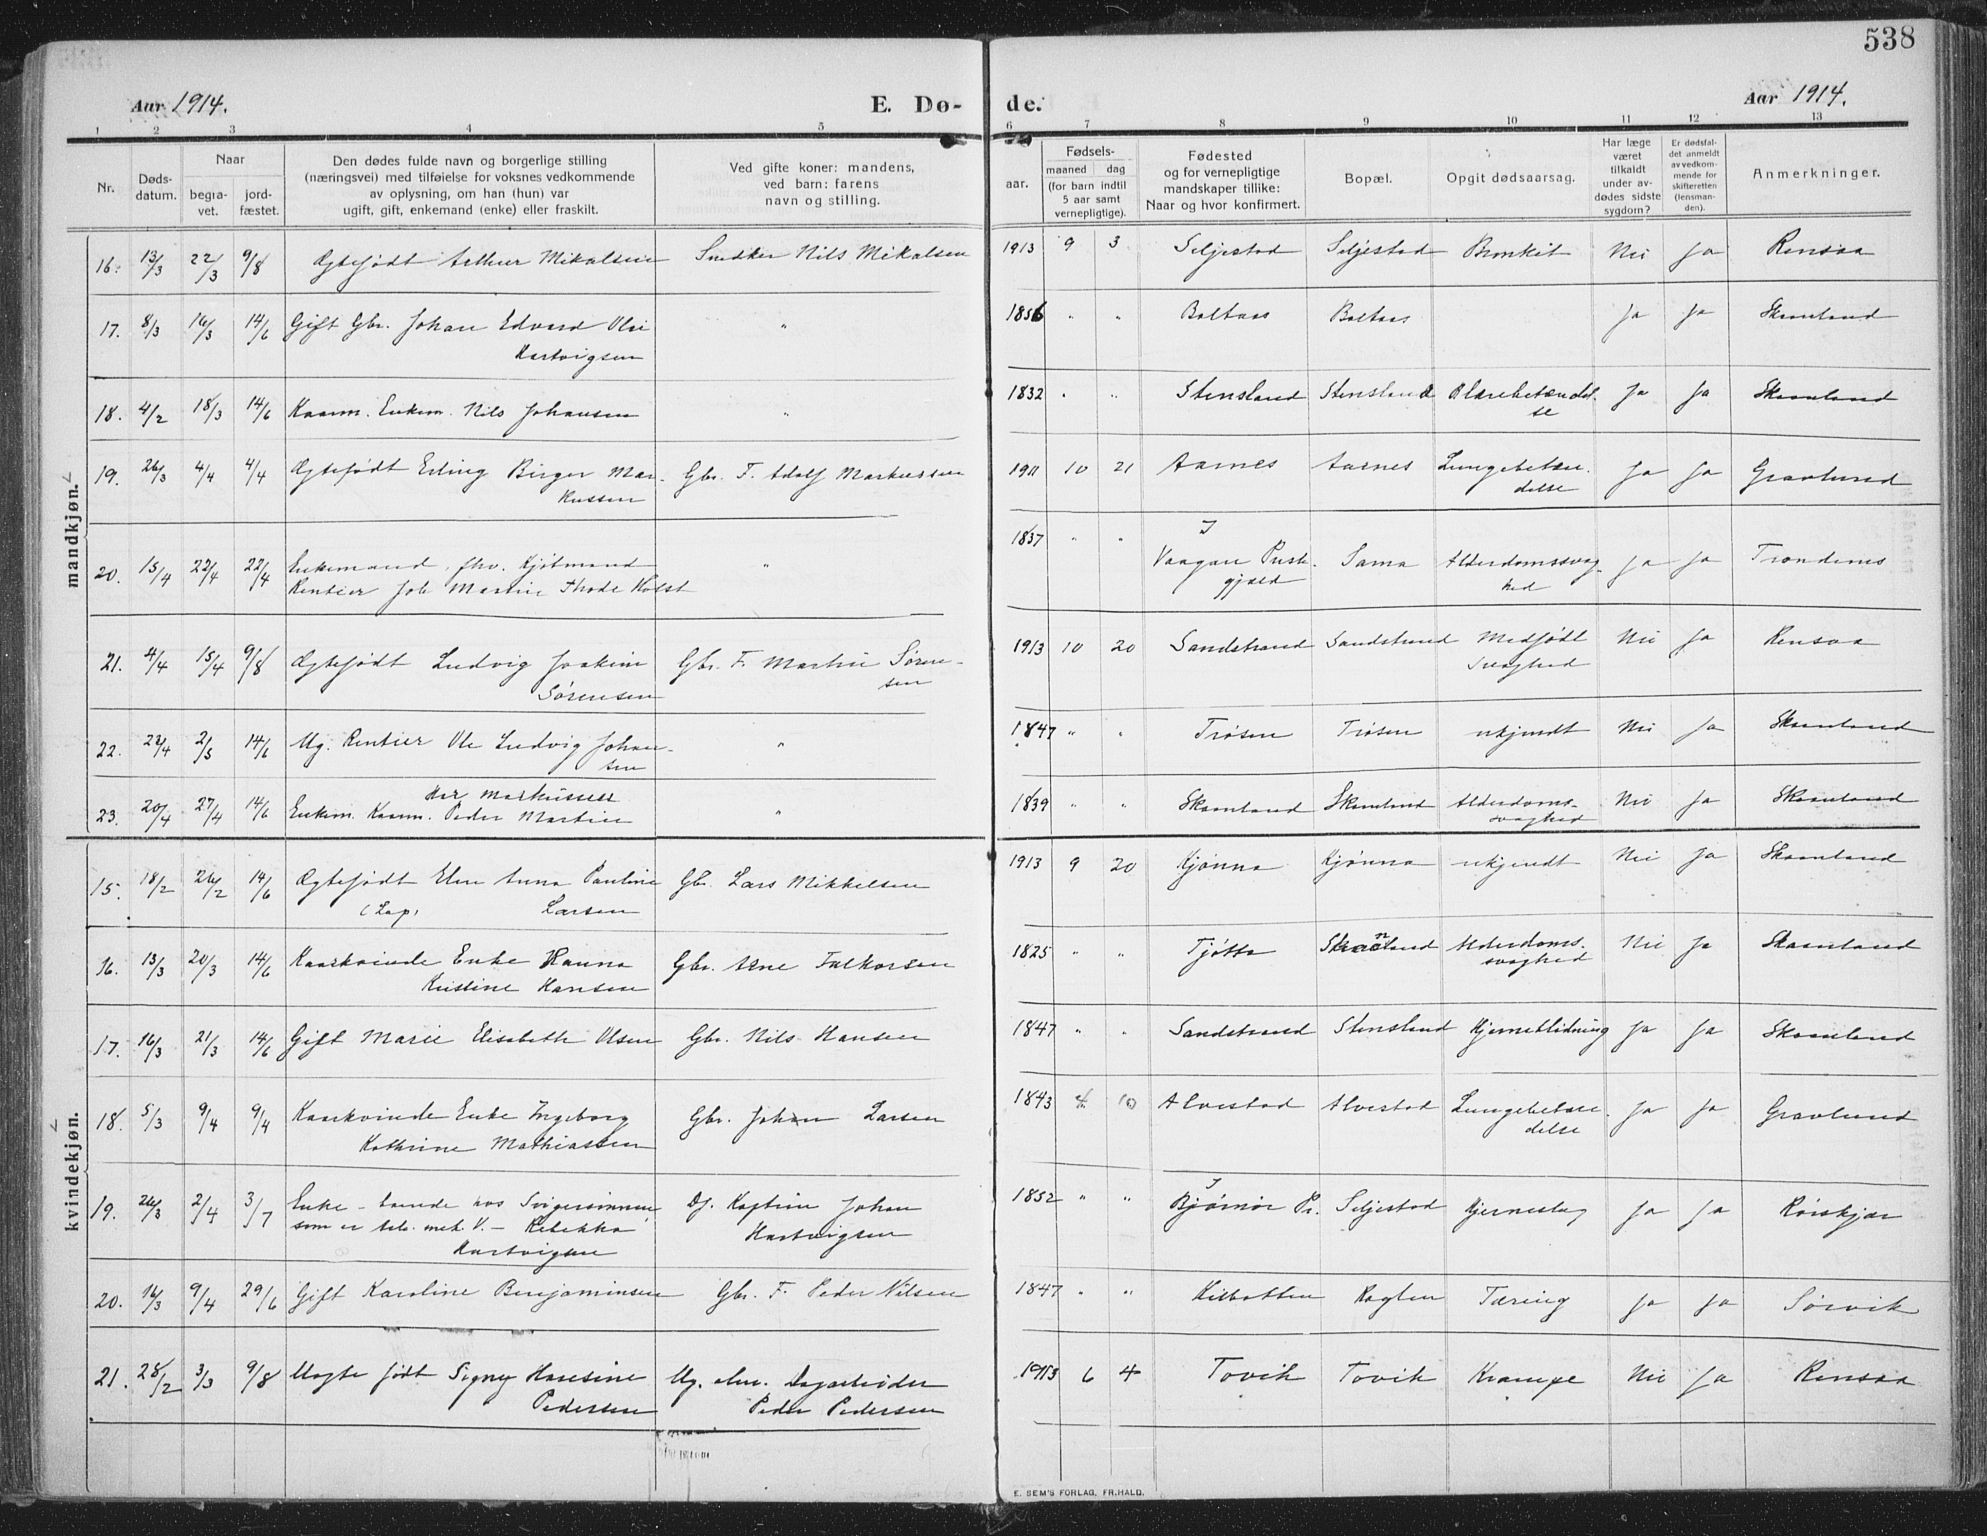 538
Aar 1914. E. Dø- de. Aar 1914.
1 2 3 4 5 6 7 8 9 10 11 12 13
Nr.
Dødsdatum.
Naar
begravet.
jordfæstet.
Den dødes fulde navn og borgerlige stilling
(næringsvei) med tilføielse for voksnes vedkommende
av oplysning, om han (hun) var
ugift, gift, enkemand (enke) eller fraskilt.
Ved gifte koner: mandens,
ved barn: farens
navn og stilling.
aar.
Fødsels-
maaned dag
(for barn indtil
5 aar samt
vernepligtige).
Fødested
og for vernepligtige
mandskaper tillike:
Naar og hvor konfirmert.
Bopæl.
Opgit dødsaarsag.
Har læge
været
tilkaldt
under av-
dødes sidste
sygdom?
Er dødsfal-
det anmeldt
av vedkom-
mende for
skifteretten
(lensman-
den).
Anmerkninger.
mandkjøn.
16. 13/3 22/3 9/8 Ægtefødt Arthur Mikalsen Snedker Nils Mikalsen 1913 9 3 Seljestad Seljestad Bronkit Nei Ja Rensaa
17. 8/3 16/3 14/6 Gift Gbr. Johan Edvard Olai 1856 " " Boltaas Boltaas Ja Ja Skaanland
Hartvigsen "
18. 4/2 18/3 14/6 Kaarm. Enkem. Nils Johansen " 1832 " " Stensland Stensland Blærebetændel- Ja Ja Skaanland
se
19. 26/3 4/4 4/4 Ægtefødt Erling Birger Mar- Gbr. F. Adolf Markussen 1911 10 21 Aarnes Aarnes Lungebetæn- Ja Ja Gravlund
kussen delse
20. 15/4 22/4 22/4 Enkemand, fhv. Kjøbmand " 1837 " " I Vaagan Preste- Sama Alderdomssvag- Ja Ja Trondenes
Rentier Joh. Martin Thode Holst gjæld hed
21. 4/4 15/4 9/8 Ægtefødt Ludvig Joakim Gbr. F. Martin Søren- 1913 10 20 Sandstrand Sandstrand Medfødt Nei Ja Rensaa
Sørensen sen svaghed
22. 22/4 2/5 14/6 Ug. Rentier Ole Ludvig Johan- " 1847 " " Trøsen Trøsen ukjendt Nei Ja Skaanland
sen
23. 20/4 27/4 14/6 Enkem. Kaarm. Peder Martin " 1839 " " Skaanland Skaanland Alderdoms- Nei Ja Skaanland
Markussen svaghed
kvindekjøn.
15. 18/2 26/2 14/6 Ægtefødt Elen Anna Pauline Gbr. Lars Mikkelsen 1913 9 20 Kjønna Kjønna ukjendt Nei Ja Skaanland
(Lap) Larsen
16. 13/3 20/3 14/6 Kaarkvinde Enke Hanna Gbr. Arne Falkorsen 1825 " " Tjøtta Skaanland Alderdoms- Nei Ja Skaanland
Kristine Hansen svaghed
17. 16/3 21/3 14/6 Gift Marie Elisabeth Olsen Gbr. Nils Hansen 1847 " " Sandstrand Stensland Hjerneblødning Ja Ja Skaanland
18. 5/3 9/4 9/4 Kaarkvinde Enke Ingeborg Gbr. Johan Larsen 1843 10 Alvestad Alvestad Lungebetæn- Ja Ja Gravlund
Kathrine Mathiassen delse
19. 26/3 2/4 3/7 Enke - boende hos Svigersønnen Df. Kaptein Johan 1852 " " I Bjørnør Pr. Seljestad Hjerneslag Ja Ja Rørskjær
som er tel. mek. V. - Rebekka Hartvigsen
Hartvigsen
20. 16/3 9/4 29/6 Gift Karoline Benjaminsen Gbr. F. Peder Nilsen 1847 " " Kilbotten Kaglen Tæring Ja Ja Sørvik
21. 28/2 3/3 9/8 Uægte født Signy Hansine Ug. Dagarbeider 1913 6 4 Tovik Tovik Krampe Nei Ja Rensaa
Pedersen Peder Pedersen
E. SEM'S FORLAG, FR.HALD.